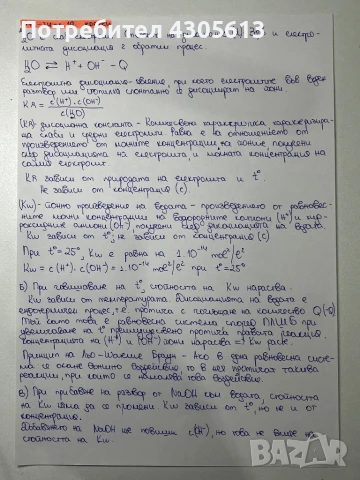 Потребител 4305613
литната дисоциация е обратим процес.
H₂O ⇌ H⁺ + OH⁻ - Q
Електролитна дисоциация - явление, при което електролитите във воден
разтвор или стопилка се дисоциират на йони.
KД = c(H⁺).c(OH⁻)
c(H₂O)
(KД) - дисоциационна константа - количествена характеристика характеризира-
ща слаби и средни електролити. Равна е на отношението от
произведението от молните концентрации на йоните, получени
след дисоциацията на електролита и молната концентрация на
самия електролит.
KД зависи от природата на електролита и t°.
Не зависи от концентрацията (c)
(Kw) - йонно произведение на водата - произведението от равновес-
ните молни концентрации на водородните катиони (H⁺) и хид-
роксидните аниони (OH⁻), получени след дисоциацията на водата.
Kw зависи от t°, не зависи от концентрацията (c)
При t°=25°, Kw е равна на 1.10⁻¹⁴ mol²/l²
Kw = c(H⁺).c(OH⁻) = 1.10⁻¹⁴ mol²/l² при t°=25°
Б) При повишаване на t°, стойността на Kw нараства.
Kw зависи от температурата. Дисоциацията на водата е
ендотермичен процес, т.е. протича с поглъщане на количество Q(-Q)
Тъй като това е равновесна система според ПЛШБ при
увеличаване на t° преимуществено протича правата реакция
концентрацията на (H⁺) и (OH⁻) йони нараства => Kw расте.
Принцип на Льо-Шателие Браун - Ако в една равновесна систе-
ма се окаже външно въздействие то в нея протичат такива
реакции, при които се намалява това въздействие.
в) При прибавяне на разтвор от NaOH към водата, стойността
на Kw няма да се промени. Kw зависи от t°, но не и от
концентрацията.
Добавянето на NaOH ще повиши c(OH⁻), но това не влияе на
стойността на Kw.
BAZAR